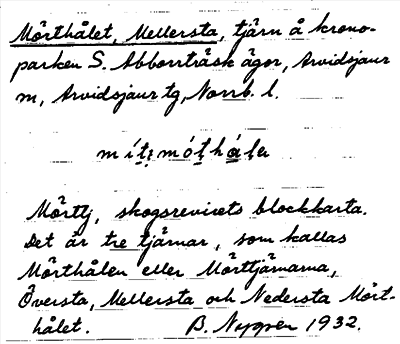 Mörthålet, Mellersta, tjärn å krono-
parken S. Abborrträsk ägor, Arvidsjaur
m, Arvidsjaur tg, Norrb. l.
Mörttj, skogsrevirets blockkarta.
Det är tre tjärnar, som kallas
Mörthålen eller Mörttjärnarna,
Översta, Mellersta och Nedersta Mört-
hålet. B. Nygren 1932.